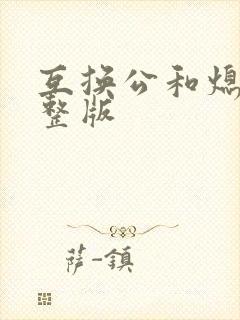 互换公和熄
整版
萨-镇